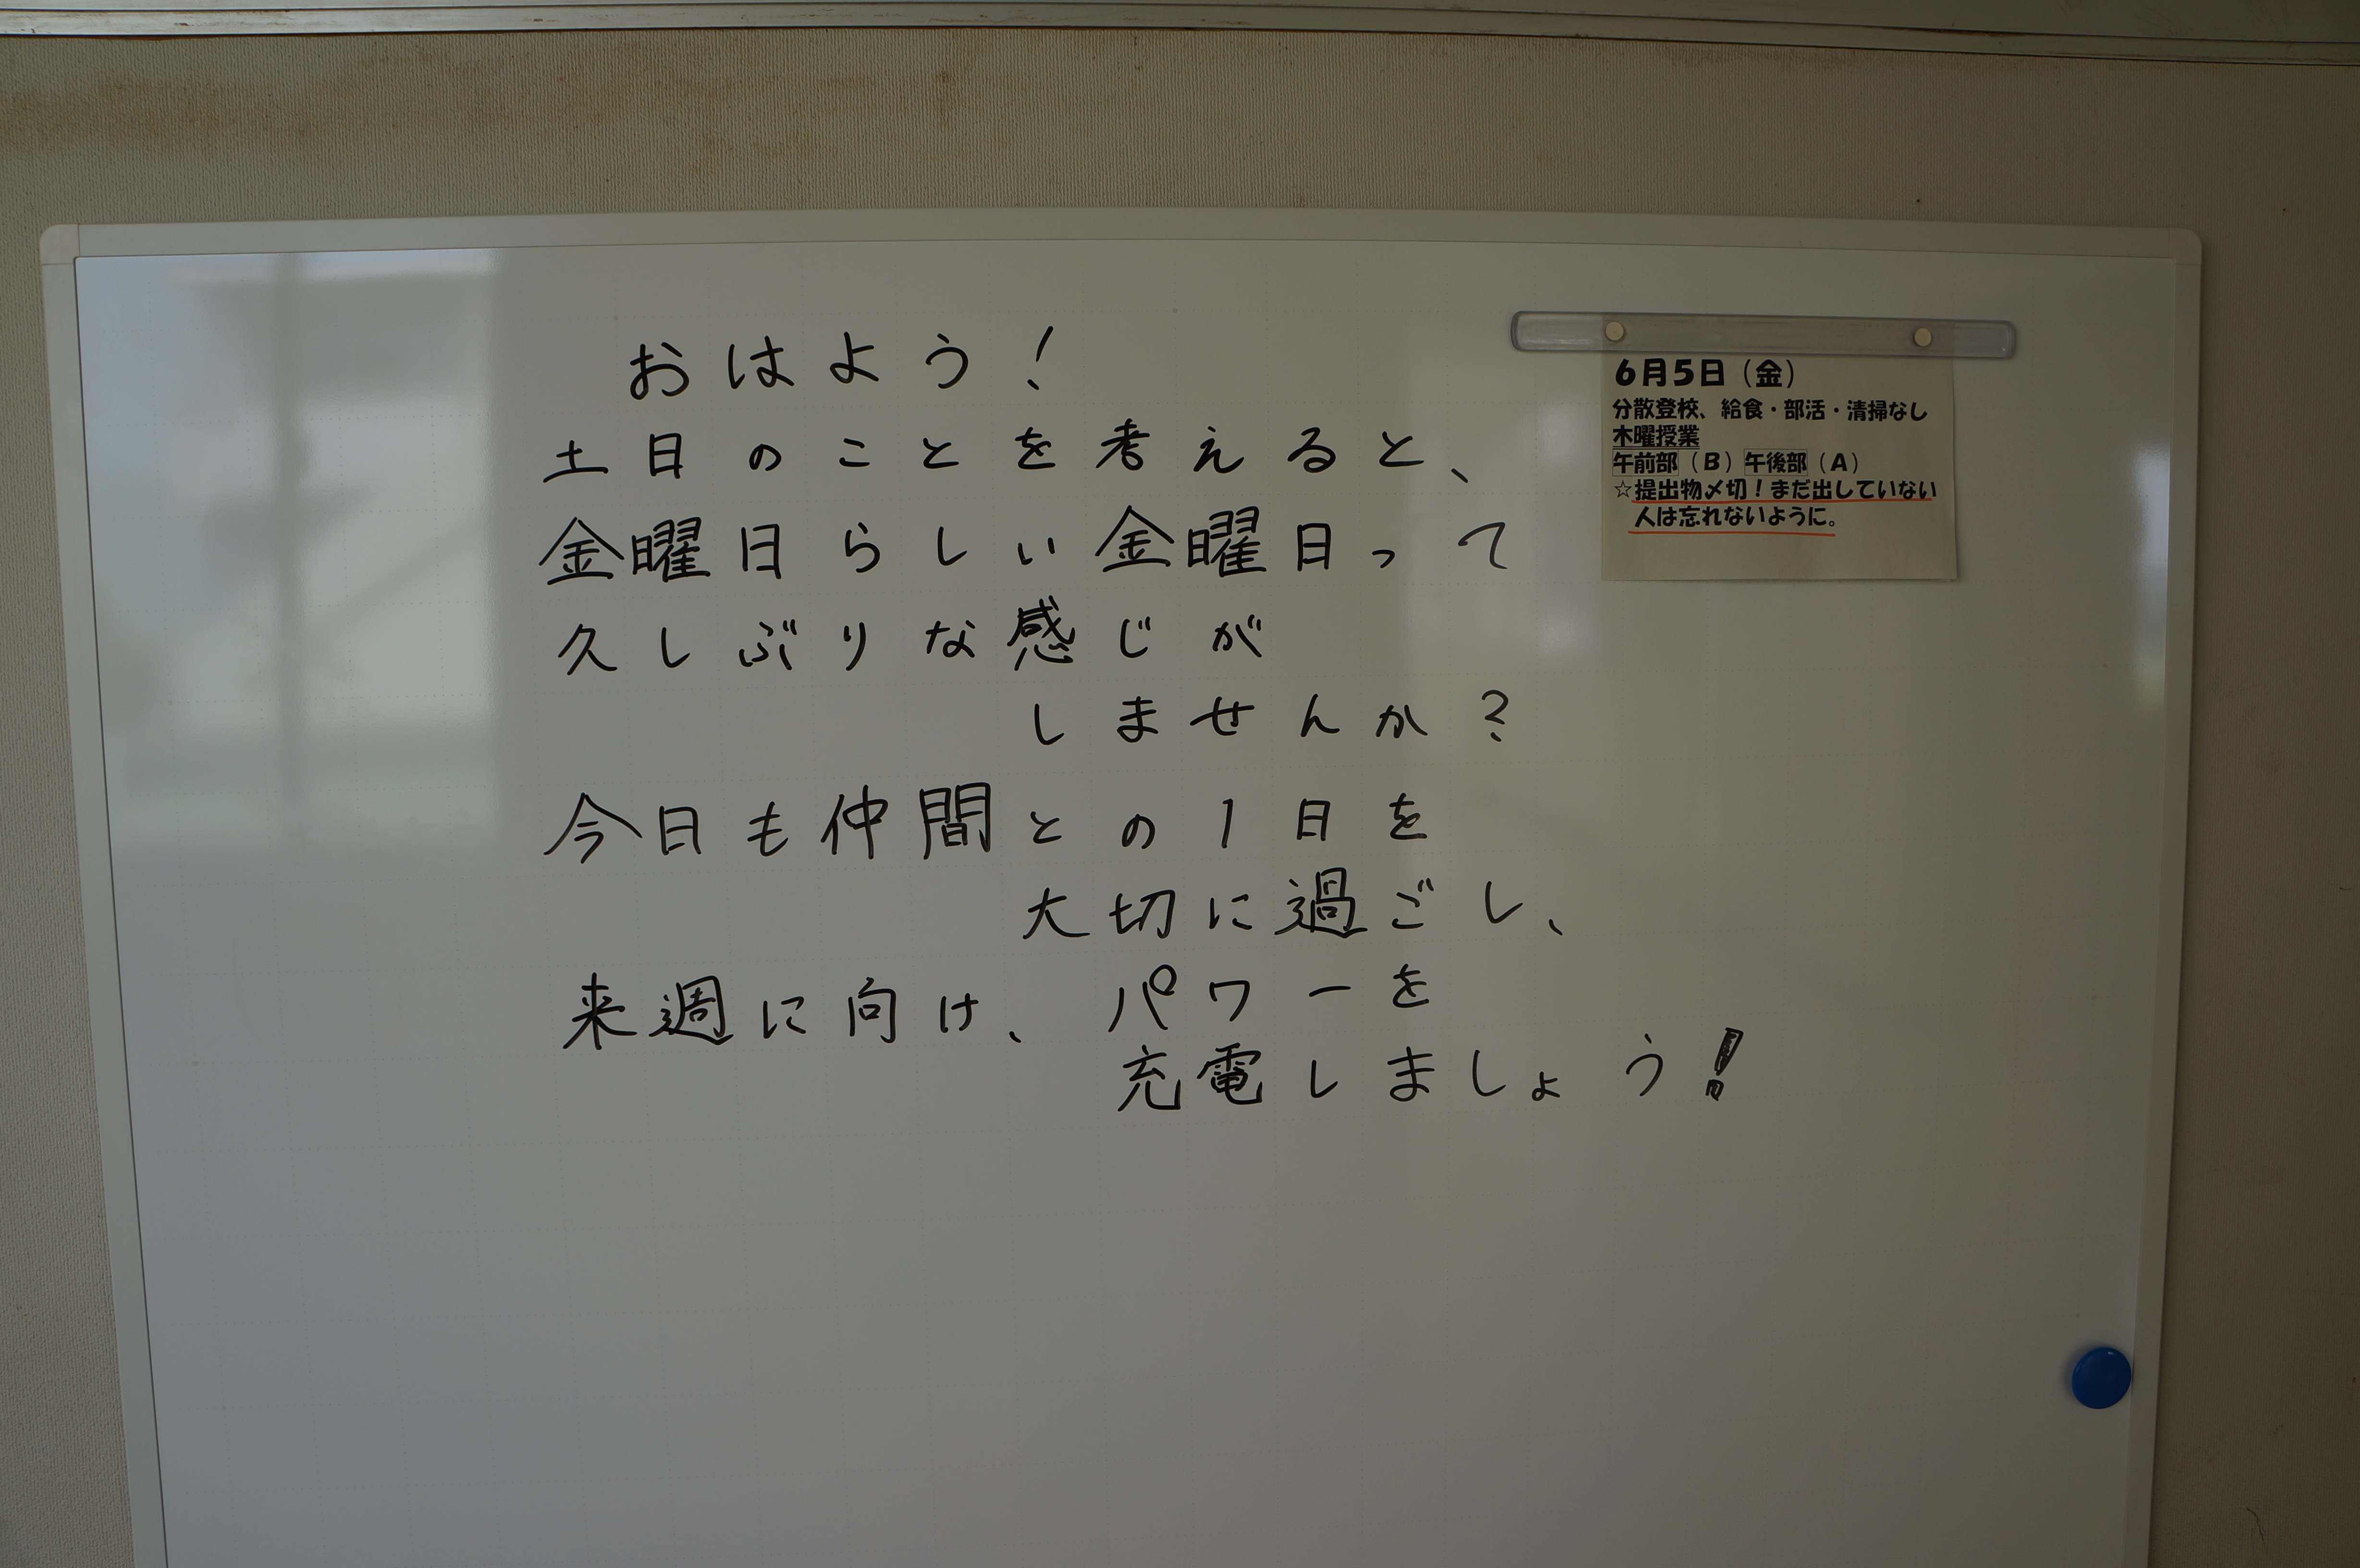 おはよう！
土日のことを考えると、
金曜日らしい金曜日って
久しぶりな感じが
しませんか？
今日も仲間との1日を
大切に過ごし、
来週に向け、パワーを
充電しましょう！
6月5日（金）
分散登校、給食・部活・清掃なし
木曜授業
午前部（B）午後部（A）
☆提出物〆切！まだ出していない
人は忘れないように。